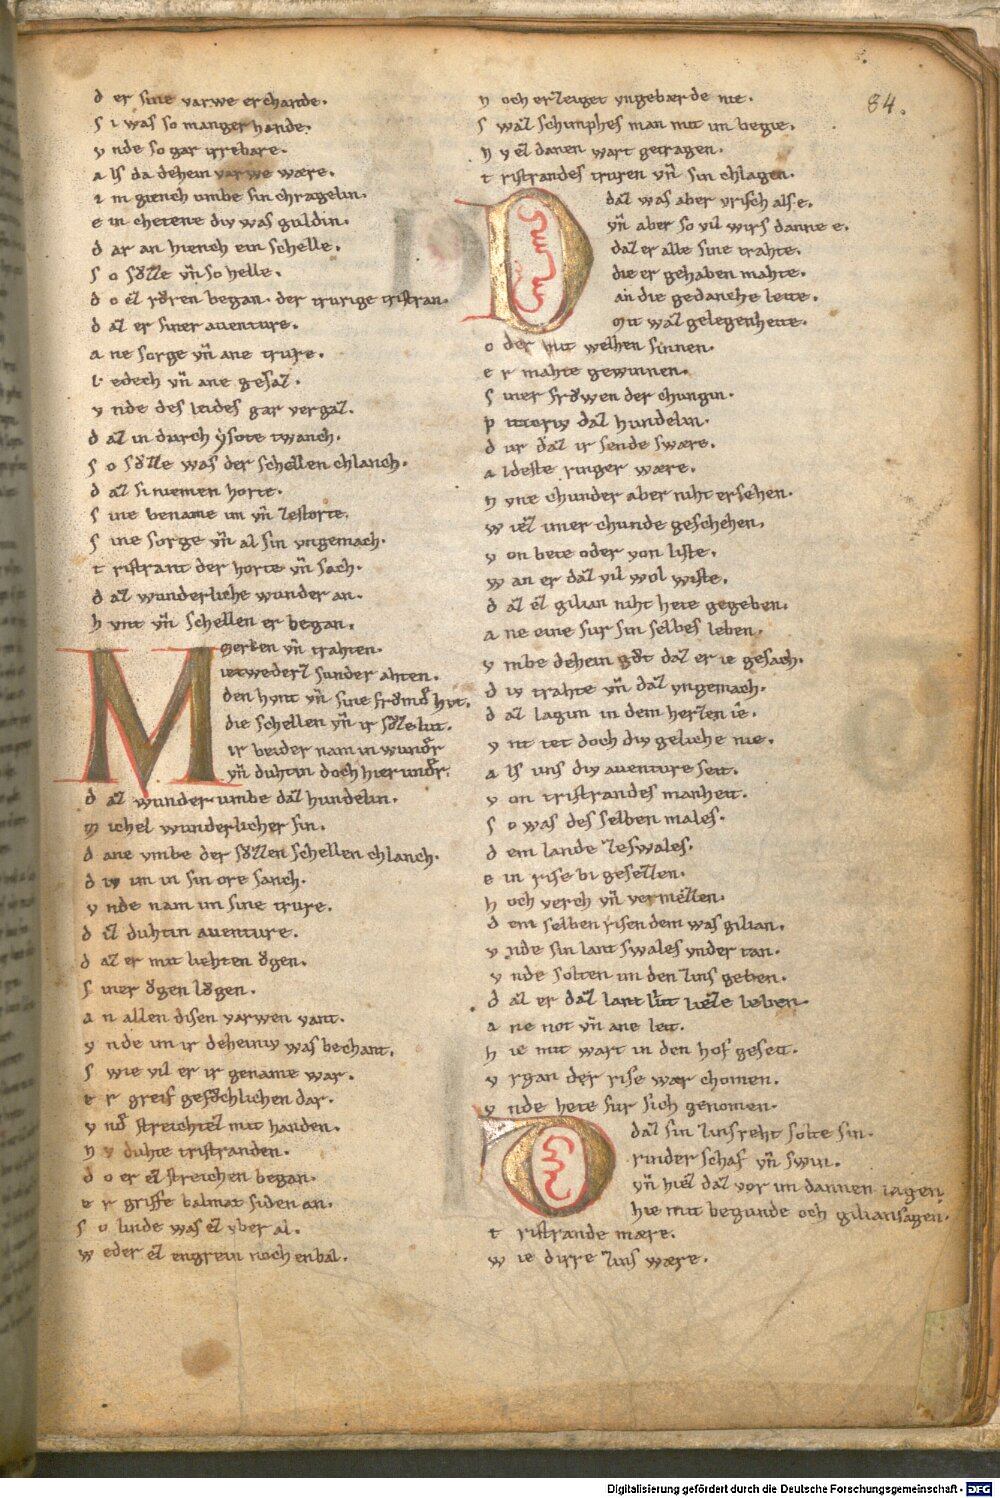 84.
d er sine varwe erchande.
s i was so manger hande.
v nde so gar irrebære.
a ls da dehein varwe wære.
i m giench umbe sin chragelin.
e in chetene div was guldin.
d ar an hiench ein schelle.
s o sůzze vn̄ so helle.
d o ez růren began. der trurige tristran.
d az er siner auenture.
a ne sorge vn̄ ane trure.
l edech vn̄ ane gesaz.
v nde des leides gar vergaz.
d az in durch ẏsote twanch.
s o sůzze was der schellen chlanch.
d az si niemen horte.
s ine bename im vn̄ zestorte.
s ine sorge vn̄ al sin vngemach.
t ristrant der horte vn̄ sach.
d az wunderliche wunder an.
h vnt vn̄ schellen er began.
M
merken vn̄ trahten.
ietwederz sunder ahten.
den hvnt vn̄ sine frŏmdͤ hvt.
die schellen vn̄ ir sůze lut.
ir beider nam in wundͤr
vn̄ duhtin doch hier undͤr.
d az wunder umbe daz hundelin.
m ichel wunderlicher sin.
d ane vmbe der sůzzen schellen chlanch.
d iv im in sin ore sanch.
v nde nam im sine trure.
d ez duhtin auenture.
d az er mit liehten ŏgen.
s iner ŏgen lŏgen.
a n allen disen varwen vant.
v nde im ir deheiniv was bechant.
s wie vil er ir gename war.
e r greif gefŏchlichen dar.
v ndͤ streichtez mit handen.
n v duhte tristranden.
d o er ez streichen began.
e r griffe balmat siden an.
s o linde was ez vber al.
w eder ez engrein noch enbal.
n och erzeuget vngebærde nie.
s waz schimphes man mit im begie.
n v ez danen wart getragen.
t ristrandes truren vn̄ sin chlagen.
D
daz was aber vrisch als e.
vn̄ aber so vil wirs danne e.
daz er alle sine trahte.
die er gehaben mahte.
an die gedanche leite.
mit waz gelegenheite.
o der mit welhen sinnen.
e r mahte gewinnen.
s iner frŏwen der chungin.
p ittcriv daz hundelin.
d ur daz ir sende swære.
a ldeste ringer wære.
n vne chunder aber niht ersehen.
w iez imer chunde geschehen.
v on bete oder von liste.
w an er daz vil wol wiste.
d az ez gilian niht hete gegeben.
a ne eine fur sin selbes leben.
v mbe dehein gŏt daz er ie gesach.
d iv trahte vn̄ daz vngemach.
d az lagim in dem herzen ie.
v nt tet doch div geliche nie.
a ls uns div auenture seit.
v on tristrandes manheit.
s o was des selben males.
d em lande zeswales.
e in rise bi gesezzen.
h och verch vn̄ vermezzen.
d em selben risen dem was gilian.
v nde sin lant swales vnder tan.
v nde solten im den zins geben.
d az er daz lant lit lieze leben.
a ne not vn̄ ane leit.
h ie mit wart in den hof geseit.
v rgan der rise wær chomen.
v nde hete fur sich genomen.
D
daz sin zinsreht solte sin.
rinder schaf vn̄ swin.
vn̄ hiez daz vor im dannen iagen.
hie mit begunde och gilian sagen.
t ristrande mære.
w ie dirre zins wære.
Digitalisierung gefördert durch die Deutsche Forschungsgemeinschaft - DFG